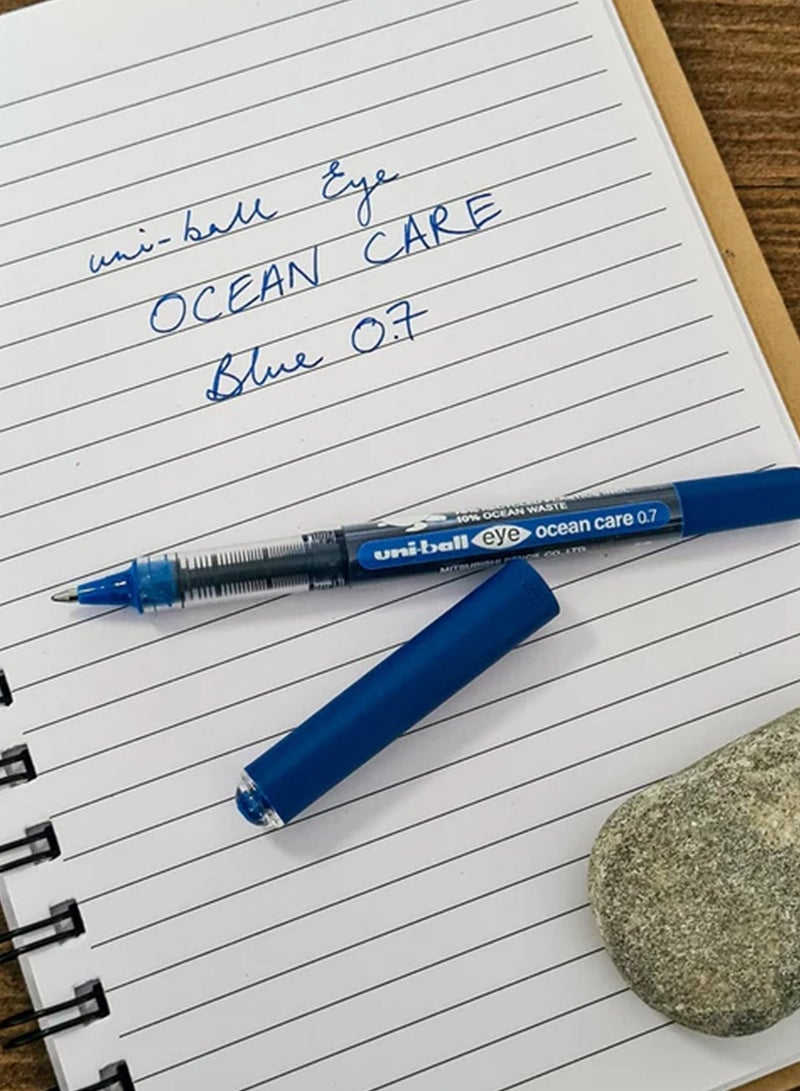 uni-ball Eye
OCEAN CARE
Blue 0.7
10% OCEAN WASTE
uni-ball eye ocean care 0.7
MITSUBISHI PENCIL CO., LTD